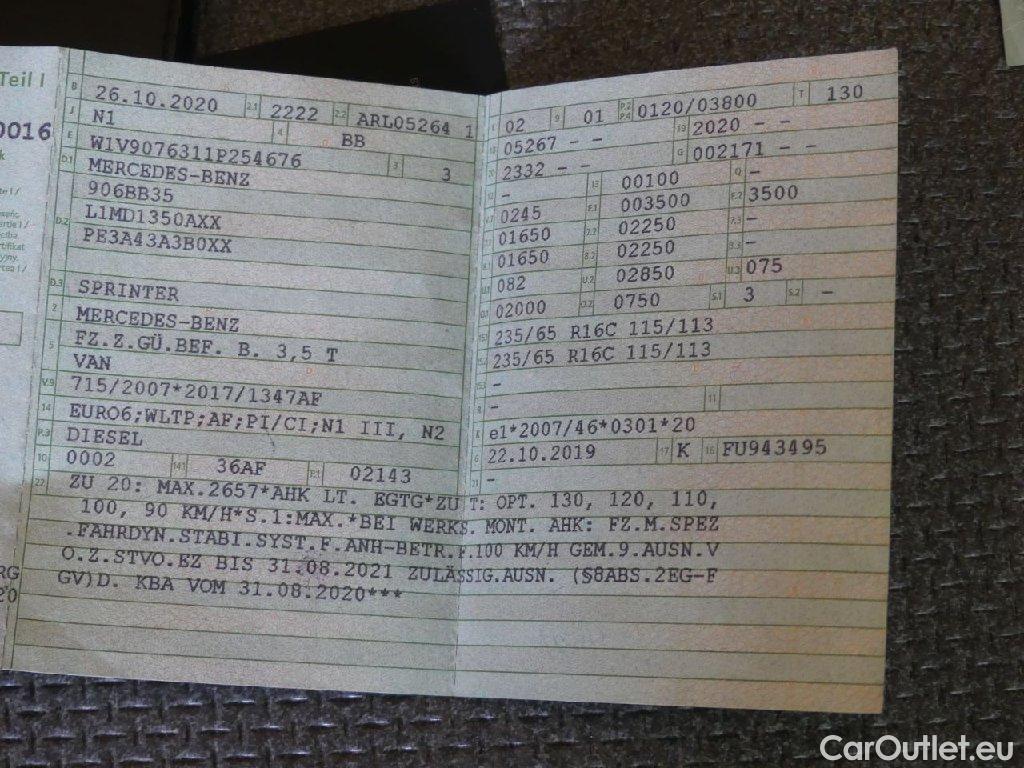 Teil I
0016
B 26.10.2020 2.1 2222 2.2 ARL05264 1
J N1 4 BB
E W1V9076311P254676 3 3
D.1 MERCEDES-BENZ
906BB35
D.2 L1MD1350AXX
PE3A43A3B0XX
D.3 SPRINTER
2 MERCEDES-BENZ
5 FZ.Z.GÜ.BEF. B. 3,5 T
VAN
V.9 715/2007*2017/1347AF
14 EURO6;WLTP;AF;PI/CI;N1 III, N2
P.3 DIESEL
10 0002 14.1 36AF P.1 02143
L 02 9 01 P.2 P.4 0120/03800 T 130
18 05267 - - 19 2020 - -
20 2332 - - G 002171 - -
12 - 13 00100 Q -
V.7 0245 F.1 003500 F.2 3500
7.1 01650 7.2 02250 7.3 -
8.1 01650 8.2 02250 8.3 -
U.1 082 U.2 02850 U.3 075
O.1 02000 O.2 0750 S.1 3 S.2 -
15.1 235/65 R16C 115/113
15.2 235/65 R16C 115/113
15.3 -
R - 11
K e1*2007/46*0301*20
6 22.10.2019 17 K 16 FU943495
21 -
22 ZU 20: MAX.2657*AHK LT. EGTG*ZU T: OPT. 130, 120, 110,
100, 90 KM/H*S.1:MAX.*BEI WERKS. MONT. AHK: FZ.M.SPEZ
.FAHRDYN.STABI.SYST.F.ANH-BETR.F.100 KM/H GEM.9.AUSN.V
O.Z.STVO.EZ BIS 31.08.2021 ZULÄSSIG.AUSN. (§8ABS.2EG-F
GV)D. KBA VOM 31.08.2020***
RG
20
CarOutlet.eu